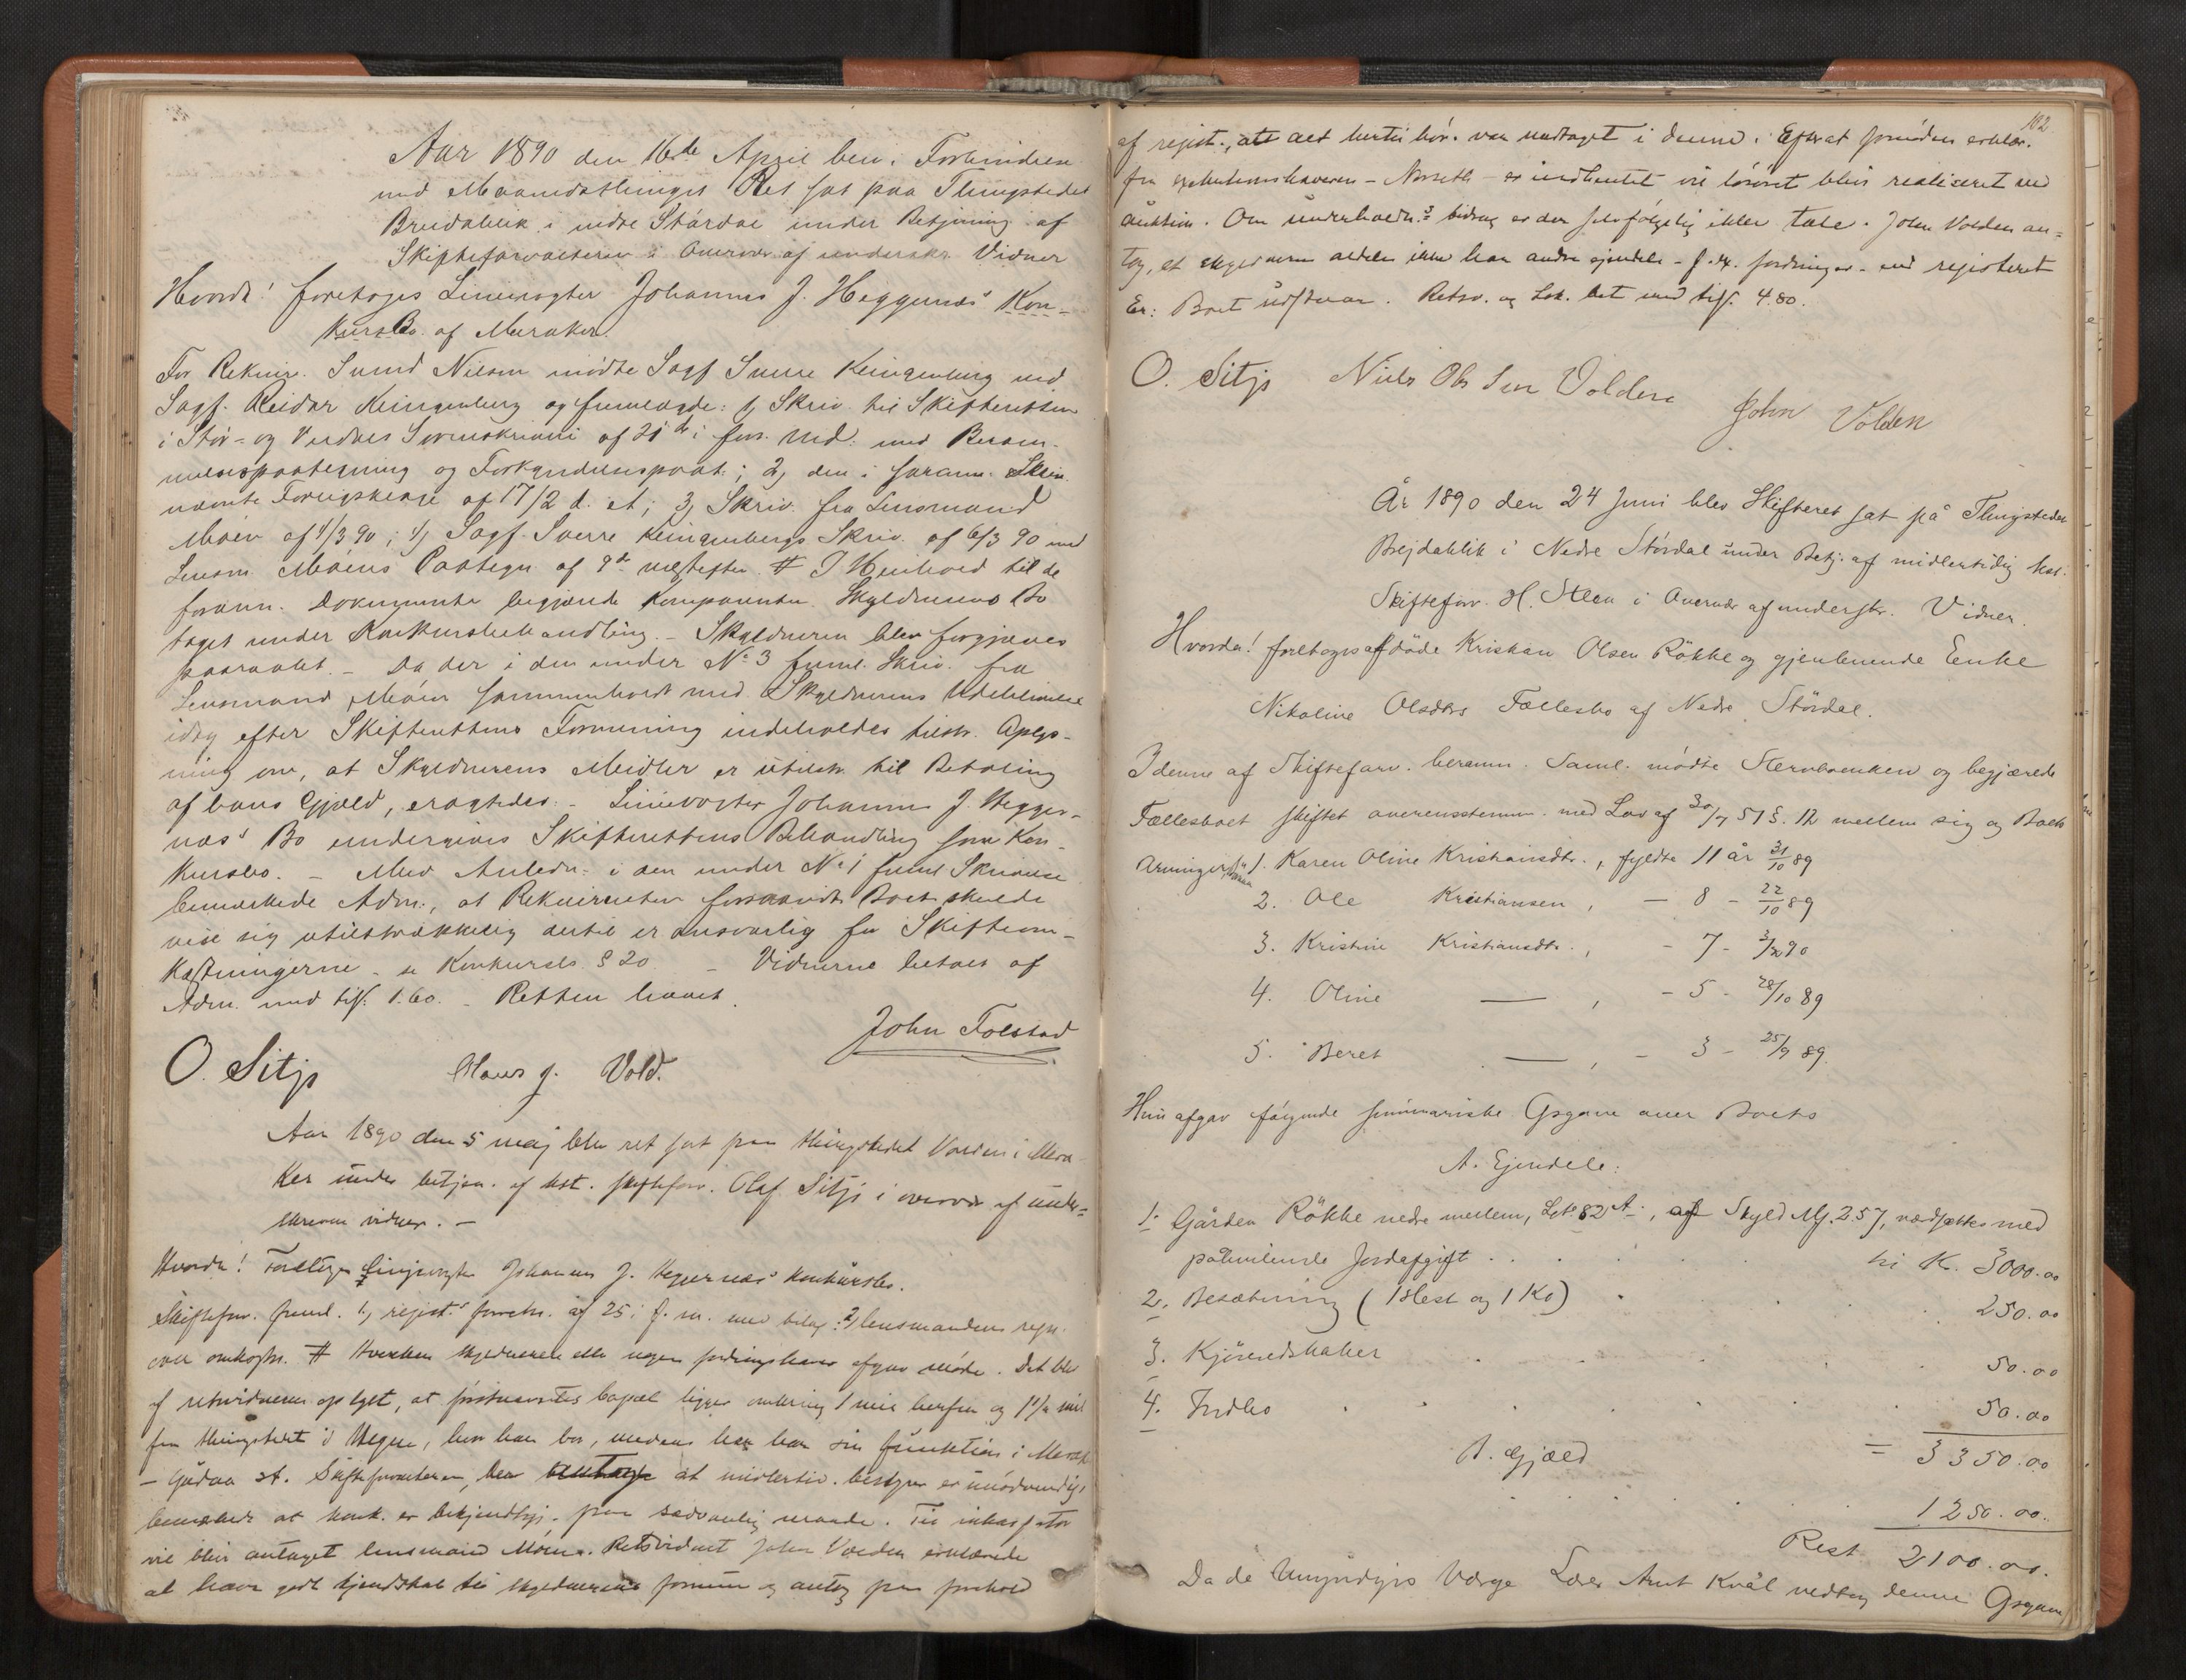 Aar 1890 den 16de April blev i Forbindelse
med Maanedsthinget Ret sat paa Thingstedet
Breidablik i nedre Stördal under Betjening af
Skifteforvalteren i Overvær af underskr. Vidner
Hvorda! foretoges Linievogter Johannes J. Heggenæs' Kon-
kursbo af Meraker.
For Rekvir. Svend Nilsen mödte Sagf Sverre Klingenberg ved
Sagf. Reidar Klingenberg og fremlagde: 1, Skriv. til Skifteretten
i Stör- og Verdals Sorenskriveri af 21de i forr. Md. med Beram-
melsespaategning og Forkyndelsespaat.; 2, den i foranm. Skriv.
nævnte Forligsklage af 17/2 d. A; 3, Skriv. fra Lensmand
Möen af 4/3 90; 4, Sagf. Sverre Klingenbergs Skriv. af 6/3 90 med
Lensm Möens Paategn af 9de næstefter. # I Henhold til de
foranm. Dokumenter begjærede Komparenten Skyldnerens Bo
taget under Konkursbehandling. - Skyldneren blev forgjæves
paaraabt. - Da der i den under No 3 freml. Skriv. fra
Lensmand Möen sammenholdt med Skyldnerens Udeblivelse
idag efter Skifterettens Formening indeholdes tilstr. Oplys-
ning om, at Skyldnerens Midler er utilstr. til Betaling
af hans Gjæld, eragtedes: - Linievogter Johannes J. Hegge-
næs' Bo undergives Skifterettens Behandling som Kon-
kursbo. - Med Anledn. i den under No 1 freml Skrivelse
bemærkede Adm., at Rekvirenten forsaavidt Boet skulde
vise sig utilstrækkelig dertil er ansvarlig for Skifteom-
kostningerne - se Konkursl. § 20. - Vidnerne betalt af
Adm. med tils. 1.60. - Retten hævet.
John Folstad
O. Sitje Claus J. Vold.
Aar 1890 den 5 maj blev ret sat paa thingstedet Volden i Mera-
ker under betjen. af kst. skifteforv. Olaf Sitje i overvær af under-
skrevne vidner. -
Hvorda! Foretoges Linjevogter Johannes J. Heggenæs' konkursbo.
Skifteforv. freml. 1, regist.s forretn. af 25 i f. m. med bilag: 2, lensmandens regn.
over omkostn. # Hverken skyldneren eller nogen fordringshaver afgav möde. Det blev
af retsvidnerne oplyst, at förstnævntes bopæl ligger omkring 1 mil herfra og 1 1/2 mil
fra thingstedet i Hegre, hvor han bor, medens han har sin funktion i Meraker
- Gudaa st. Skifteforvalteren, der at midlertid. bestyrer er unödvendig,
bemærkede at konk. er bekjendtgj. paa sædvanlig maade. Til inkassator
vil blive antaget lensmand Möen. Retsvidnet John Volden erklærede
at have godt kjendskab til skyldnerens formue og antog paa forhold
102
af regist., at alt hertil hör. var medtaget i denne. Efterat fornöden erklær.
fra exekutionshaveren - Norseth - er indhentet vil lösöret blive realiseret ved
auktion. Om underholdn.s bidrag er der selvfölgelig ikke tale. John Volden an-
tog, at skyldneren aldeles ikke har andre ejendele - f. ex. fordringer - end registeret
Er: Boet udstaar. Retsv. og Lok. bet med tils. 4.80.
O. Sitje Niels Ols Sen Volden John Volden
År 1890 den 24 Juni blev Skifteret sat på Thingstedet
Brejdablik i Nedre Stördal under Betj. af midlertidig kst.
Skifteforv. H. Steen i Overvær af underskr. Vidner.
Hvorda! foretoges afdöde Kristian Olsen Rökke og gjenlevende Enke
Nikoline Olsdtrs Fællesbo af Nedre Stördal.
I denne af Skifteforv. beramm. Saml. mödte Stervboenken og begjærede
Fællesboet skiftet overensstemm. med Lov af 30/7 51 § 12 mellem sig og Boets
Arvinger 1. Karen Oline Kristiansdtr., fyldte 11 år 31/10 89
2. Ole Kristiansen, - 8 - 22/10 89
3. Kristine Kristiansdtr., - 7 - 3/2 90
4. Oline —, - 5 - 28/10 89
5. Beret —, - 3 - 25/9 89.
Hun afgav fölgende summariske Opgave over Boets
A. Ejendele:
1. Gården Rökke nedre mellem, Lb 82 A., af Skyld M. 2.57, værdsættes med
påhvilende Jordafgift . . . til K. 3000.00
2. Besætning (1 Hest og 1 Ko) . . . 250.00
3. Kjöreredskaber . . . 50.00
4. Indbo . . . 50.00
= 3350.00
B. Gjæld
. . . 1250.00.
Rest 2100.00.
Da de Umyndiges Værge Lærer Arnt Kvål vedtog denne Opgave